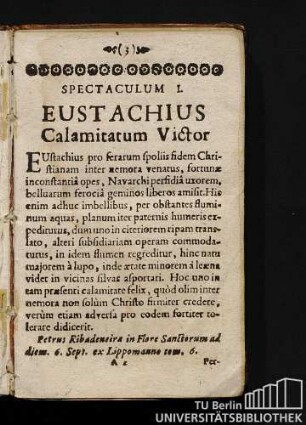 (3)
SPECTACULUM I.
EUSTACHIUS
Calamitatum Victor
EUstachius pro ferarum spoliis fidem Chri-
stianam inter nemora venatus, fortunæ
inconstantiâ opes, Navarchi perfidiâ uxorem,
belluarum ferociâ geminos liberos amisit. His
enim adhuc imbellibus, per obstantes flumi-
num aquas, planum iter paternis humeris ex-
pediturus, dum uno in citeriorem ripam trans-
lato, alteri subsidiariam operam commoda-
turus, in idem flumen regreditur, hinc natu
majorem à lupo, inde ætate minorem à leæna
videt in vicinas silvas asportari. Hoc uno in
tam præsenti calamitate felix, quòd olim inter
nemora non solùm Christo firmiter credere,
verùm etiam adversa pro eodem fortiter to-
lerare didicerit.
Petrus Ribadeneira in Flore Sanctorum ad
diem. 6. Sept. ex Lippomanno tom. 6.
A 2 Pet-
TU Berlin
UNIVERSITÄTSBIBLIOTHEK